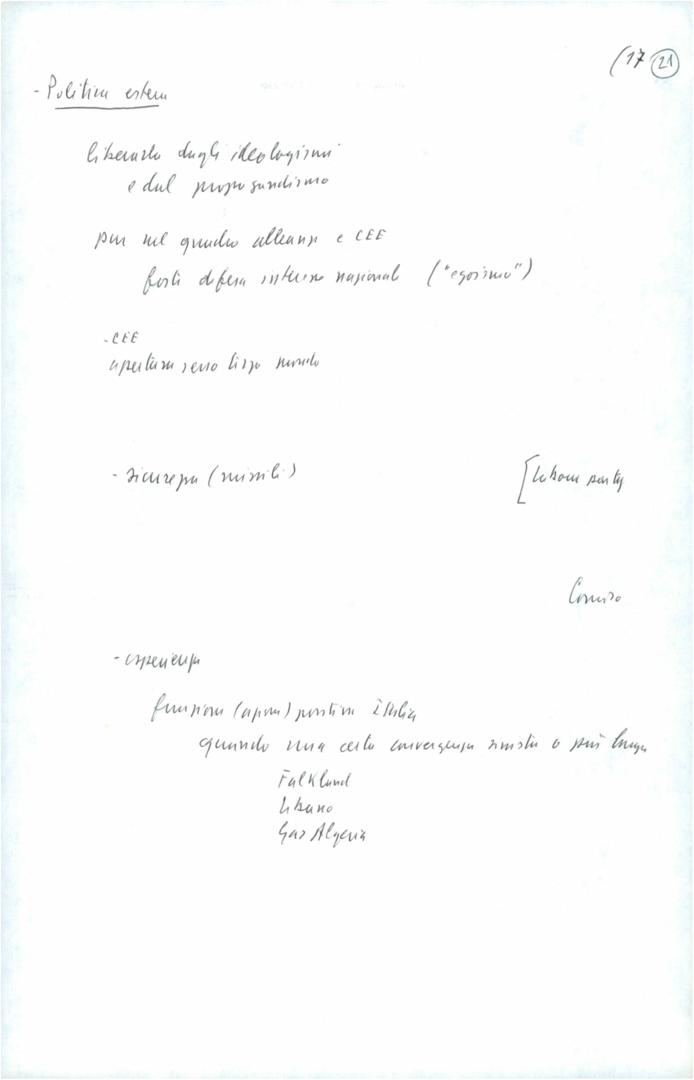 (17 21
- Politica estera
liberarla dagli ideologismi
e dal propagandismo
pur nel quadro alleanze e CEE
forte difesa interessi nazionali ("egoismo")
- CEE
apertura verso terzo mondo
- sicurezza (missili)
[Labour party
Comiso
- esperienza
funzione (azione) positiva Italia
quando una certa convergenza sinistra o più larga
Falkland
Libano
Gas Algeria